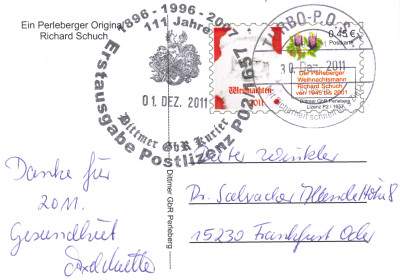 Ein Perleberger Original
Richard Schuch
1896-1996-2007
111 Jahre
Erstausgabe Postlizenz P02/1657
01. DEZ. 2011
Dittmer GbR Kurier
TURBO-P.O.S.T.
30. Dez. 2011
0,45 €
Postkarte
Weihnachten
2011
Der Perleberger
Weihnachtsmann
Richard Schuch
von 1945 bis 2001
Dittmer GbR Perleberg
Dittmer GbR Perleberg
Danke für
2011.
Gesundheit
Winkler
Dr. Salvador Allende
15230 Frankfurt Oder